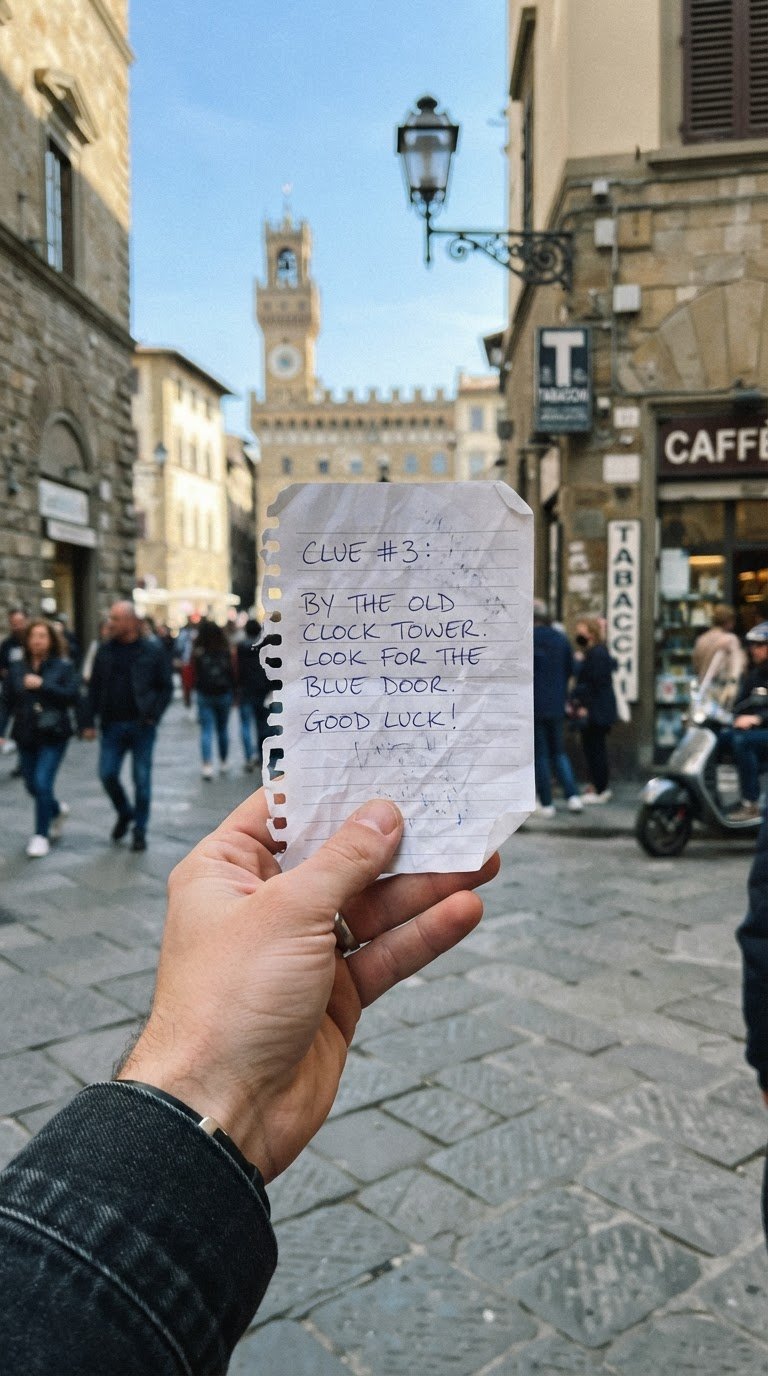 CLUE #3:
BY THE OLD
CLOCK TOWER.
LOOK FOR THE
BLUE DOOR.
GOOD LUCK!
T
TABACCHI
CAFFÈ
TABACCHI